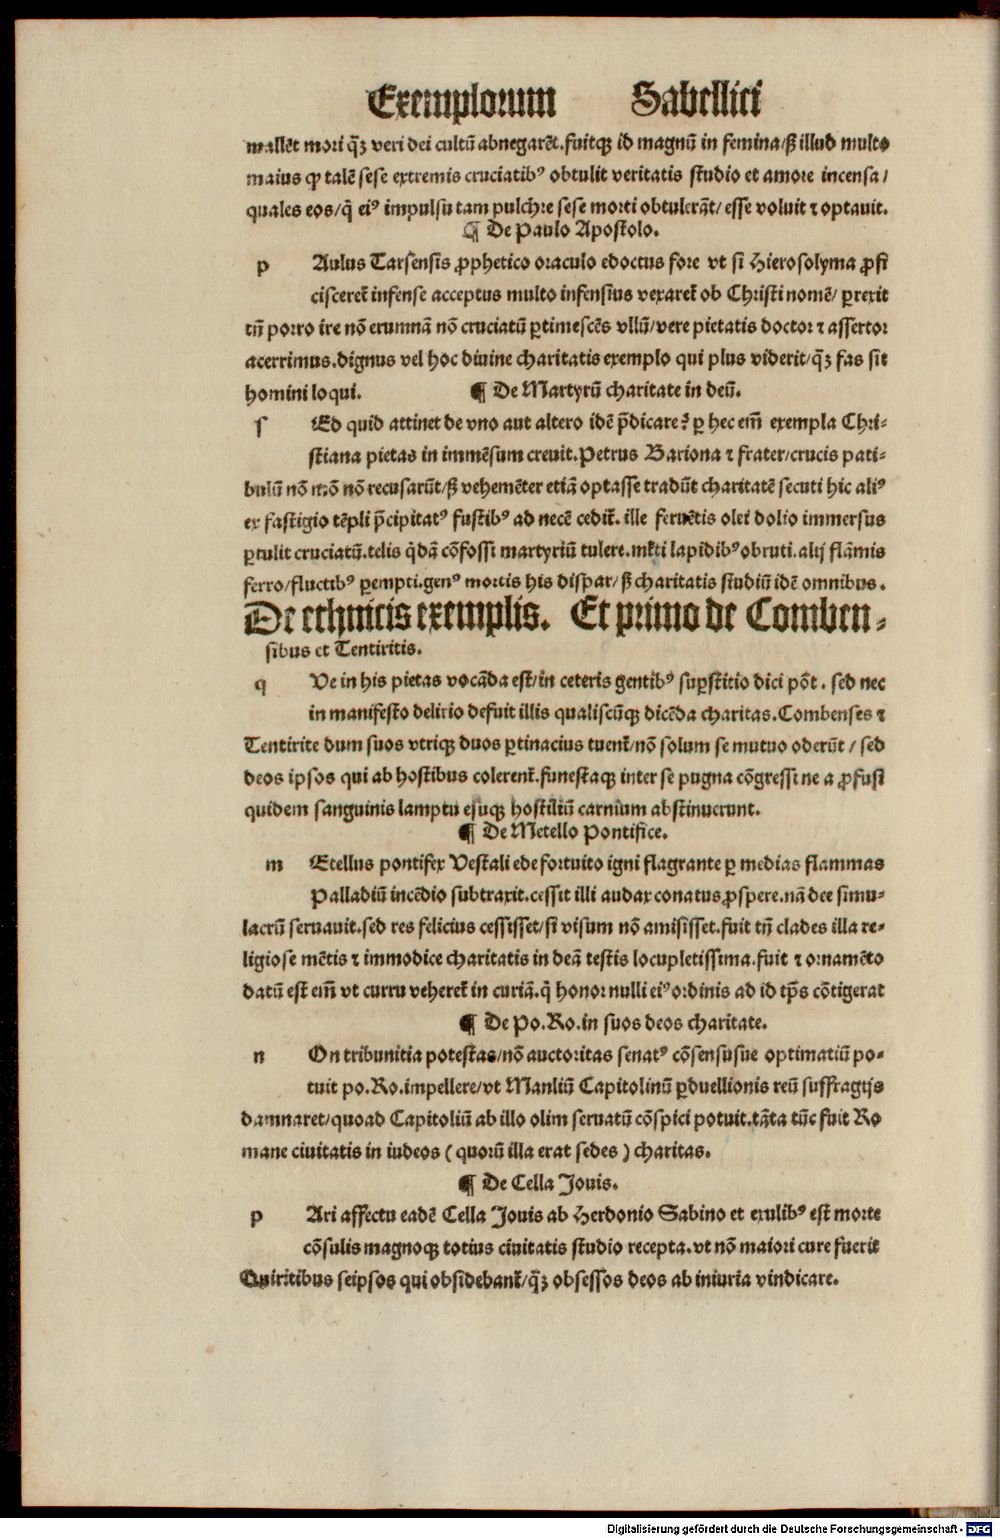 Exemplorum Sabellici
mallēt mori q̄ꝫ veri dei cultū abnegarēt.fuitqꝫ id magnū in femina/ꝭ illud multo
maius ꝙ talē sese extremis cruciatibꝰ obtulit veritatis studio et amore incensa/
quales eos/q̄ eiꝰ impulsu tam pulchre sese morti obtulerāt/esse voluit ⁊ optauit.
¶ De Paulo Apostolo.
p Aulus Tarsensis ꝓphetico oraculo edoctus fore vt si Hierosolyma ꝓfi
cisceret̄ infense acceptus multo infensius vexaret̄ ob Christi nomē/ ꝑrexit
tn̄ porro ire nō erumnā nō cruciatū ꝑtimescēs vllū/vere pietatis doctor ⁊ assertor
acerrimus.dignus vel hoc diuine charitatis exemplo qui plus viderit/q̄ꝫ fas sit
homini loqui. ¶ De Martyrū charitate in deū.
s Ed quid attinet de vno aut altero idē p̄dicare? ꝑ hec em̄ exempla Chri-
stiana pietas in immēsum creuit.Petrus Bariona ⁊ frater/crucis pati-
bulū nō mō nō recusarūt/ꝭ vehemēter etiā optasse tradūt charitatē secuti hic aliꝰ
ex fastigio tēpli p̄cipitatꝰ fustibꝰ ad necē cedit̄. ille feruētis olei dolio immersus
ꝑtulit cruciatū.telis q̄dā cōfossi martyriū tulere.ml̄ti lapidibꝰ obruti.alij flāmis
ferro/fluctibꝰ ꝑempti.genꝰ mortis his dispar/ꝭ charitatis studiū idē omnibus.
De ethnicis exemplis. Et primo de Comben-
sibus et Tentiritis.
q Ve in his pietas vocāda est/in ceteris gentibꝰ suꝑstitio dici pōt. sed nec
in manifesto delirio defuit illis qualiscūqꝫ dicēda charitas.Combenses ⁊
Tentirite dum suos vtriqꝫ duos ꝑtinacius tuent̄/nō solum se mutuo oderūt / sed
deos ipsos qui ab hostibus colerent̄.funestaqꝫ inter se pugna cōgressi ne a ꝓfusi
quidem sanguinis lamptu esuqꝫ hostiliū carnium abstinuerunt.
¶ De Metello Pontifice.
m Etellus pontifex Vestali ede fortuito igni flagrante ꝑ medias flammas
Palladiū incēdio subtraxit.cessit illi audax conatus ꝓspere.nā dee simu-
lacrū seruauit.sed res felicius cessisset/si visum nō amisisset.fuit tn̄ clades illa re-
ligiose mētis ⁊ immodice charitatis in deā testis locupletissima.fuit ⁊ ornamēto
datū est em̄ vt curru veheret̄ in curiā.q̄ honor nulli eiꝰ ordinis ad id tp̄s cōtigerat
¶ De Po.Ro.in suos deos charitate.
n On tribunitia potestas/nō auctoritas senatꝰ cōsensusue optimatiū po-
tuit po.Ro.impellere/vt Manliū Capitolinū ꝑduellionis reū suffragijs
damnaret/quoad Capitoliū ab illo olim seruatū cōspici potuit.tāta tūc fuit Ro
mane ciuitatis in iudeos ( quorū illa erat sedes ) charitas.
¶ De Cella Jouis.
p Ari affectu eadē Cella Jouis ab Herdonio Sabino et exulibꝰ est morte
cōsulis magnoqꝫ totius ciuitatis studio recepta.vt nō maiori cure fuerit
Quiritibus seipsos qui obsidebant̄/q̄ꝫ obsessos deos ab iniuria vindicare.
Digitalisierung gefördert durch die Deutsche Forschungsgemeinschaft - DFG